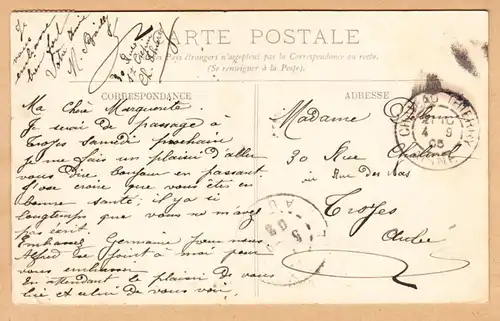 Je
vous
embrasse
Votre Amie
M.
CARTE POSTALE
Pays étrangers n'acceptent pas la Correspondance au recto.
(Se renseigner à la Poste).
CORRESPONDANCE
Ma Chère Marguerite.
Je serai de passage à
Troyes Samedi prochain
je me fais un plaisir d'aller
vous dire bonjour en passant
J'ose croire que vous êtes en
bonne santé; il y a si
longtemps que vous ne m'avez
pas écrit.
Embrassez Germaine pour nous
Alfred se joint à moi pour
vous embrasser.
En attendant le plaisir de vous
lire et celui de vous voir.
ADRESSE
Madame
30 Rue
ou Rue des Bas
Troyes
Aube
CHATEAU-THIERRY
4 9
05
AISNE